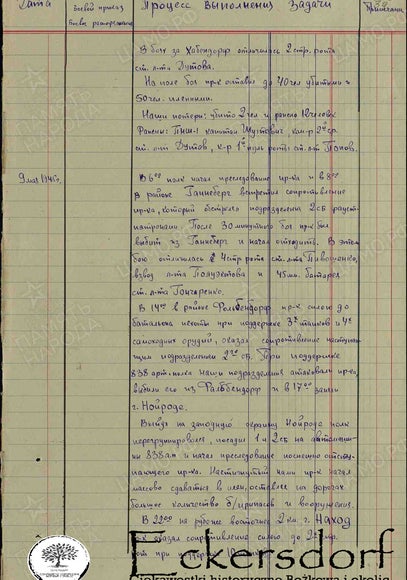 Дата
Боевой приказ
Боевое распоряжение
Процесс Выполнения Задачи
Примечание
В бою за Хабендорф отличилась 2 стр. рота
ст. л-та Дутова.
На поле боя пр-к оставил до 40 чел убитыми и
50 чел. пленными.
Наши потери: убито 2 чел и ранено 12 человек.
Ранены: ПНШ-1 капитан Шутович, ком-р 2й ср.
ст. л-т Дутов, к-р 1й пуль роты ст. л-т Попов.
9 мая 1945 г.
В 6:00 полк начал преследование пр-ка и в 8:00
в районе Ганнеберг встретил сопротивление
пр-ка, который обстрелял подразделения 2сб фауст-
патронами. После 30 минутного боя пр-к был
выбит из Ганнеберг и начал отходить. В этом
бою отличилась 4 стр рота ст. л-та Пивошенко,
взвод л-та Полуэктова и 45 мм. батарея
ст. л-та Гончаренко.
В 14:00 в районе Фольбендорф пр-к силою до
батальона пехоты при поддержке 3х танков и 4х
самоходных орудий, оказал сопротивление наступаю-
щим подразделениям 2го сб. При поддержке
838 арт.полка наши подразделения атаковали пр-ка,
выбили его из Фольбендорф и в 17:00 заняли
г. Нойроде.
Выйдя на западную окраину Нойроде полк
перегруппировался, посадив 1 и 2сб на автомаши-
ны 838 ап и начал преследование поспешно отсту-
пающего пр-ка. Настигнутый нами пр-к начал
массово сдаваться в плен, оставляя на дорогах
большое количество б/припасов и вооружения.
В 22:00 на рубеже восточнее 2 км. г. Наход
пр-к оказал сопротивление силою до
рот при поддержке
Eckersdorf
Ciekawostki historyczne Bożkowa i okolic